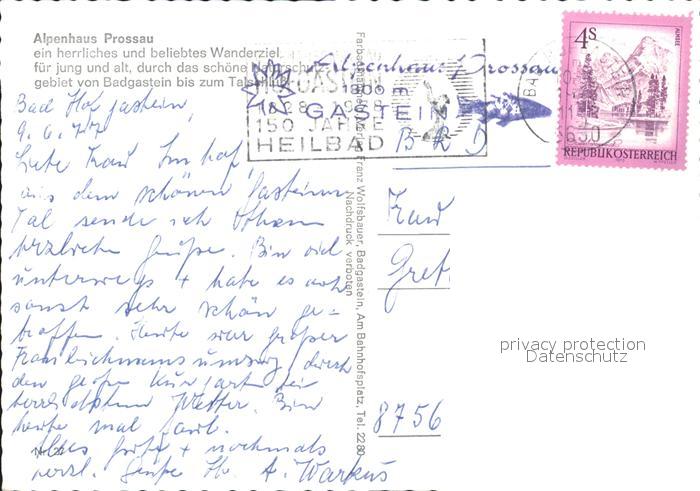 Alpenhaus Prossau
ein herrliches und beliebtes Wanderziel
für jung und alt, durch das schöne
gebiet von Badgastein bis zum
Bad Hofgastein
9. 6. 77
Liebe Frau Imhof,
aus dem schönen Gasteiner
Tal sende ich Ihnen
herzliche Grüße. Bin viel
unterwegs + habe es auch
sonst sehr schön ge-
troffen. Heute war großer
Fronleichnamsumzug durch
den großen Kurgarten bei
Wetter. Bin
heute mal faul.
Alles Gute + nochmals
herzl. Grüße Ihr A. Warkus
Alpenhaus Prossau
1300 m
GASTEIN
1828 1978
150 JAHRE
HEILBAD
BRD
Frau
Gret
8756
Franz Wolfsbauer, Badgastein, Am Bahnhofsplatz, Tel. 2280
Nachdruck verboten
4S
ALMSEE
REPUBLIK ÖSTERREICH
privacy protection
Datenschutz